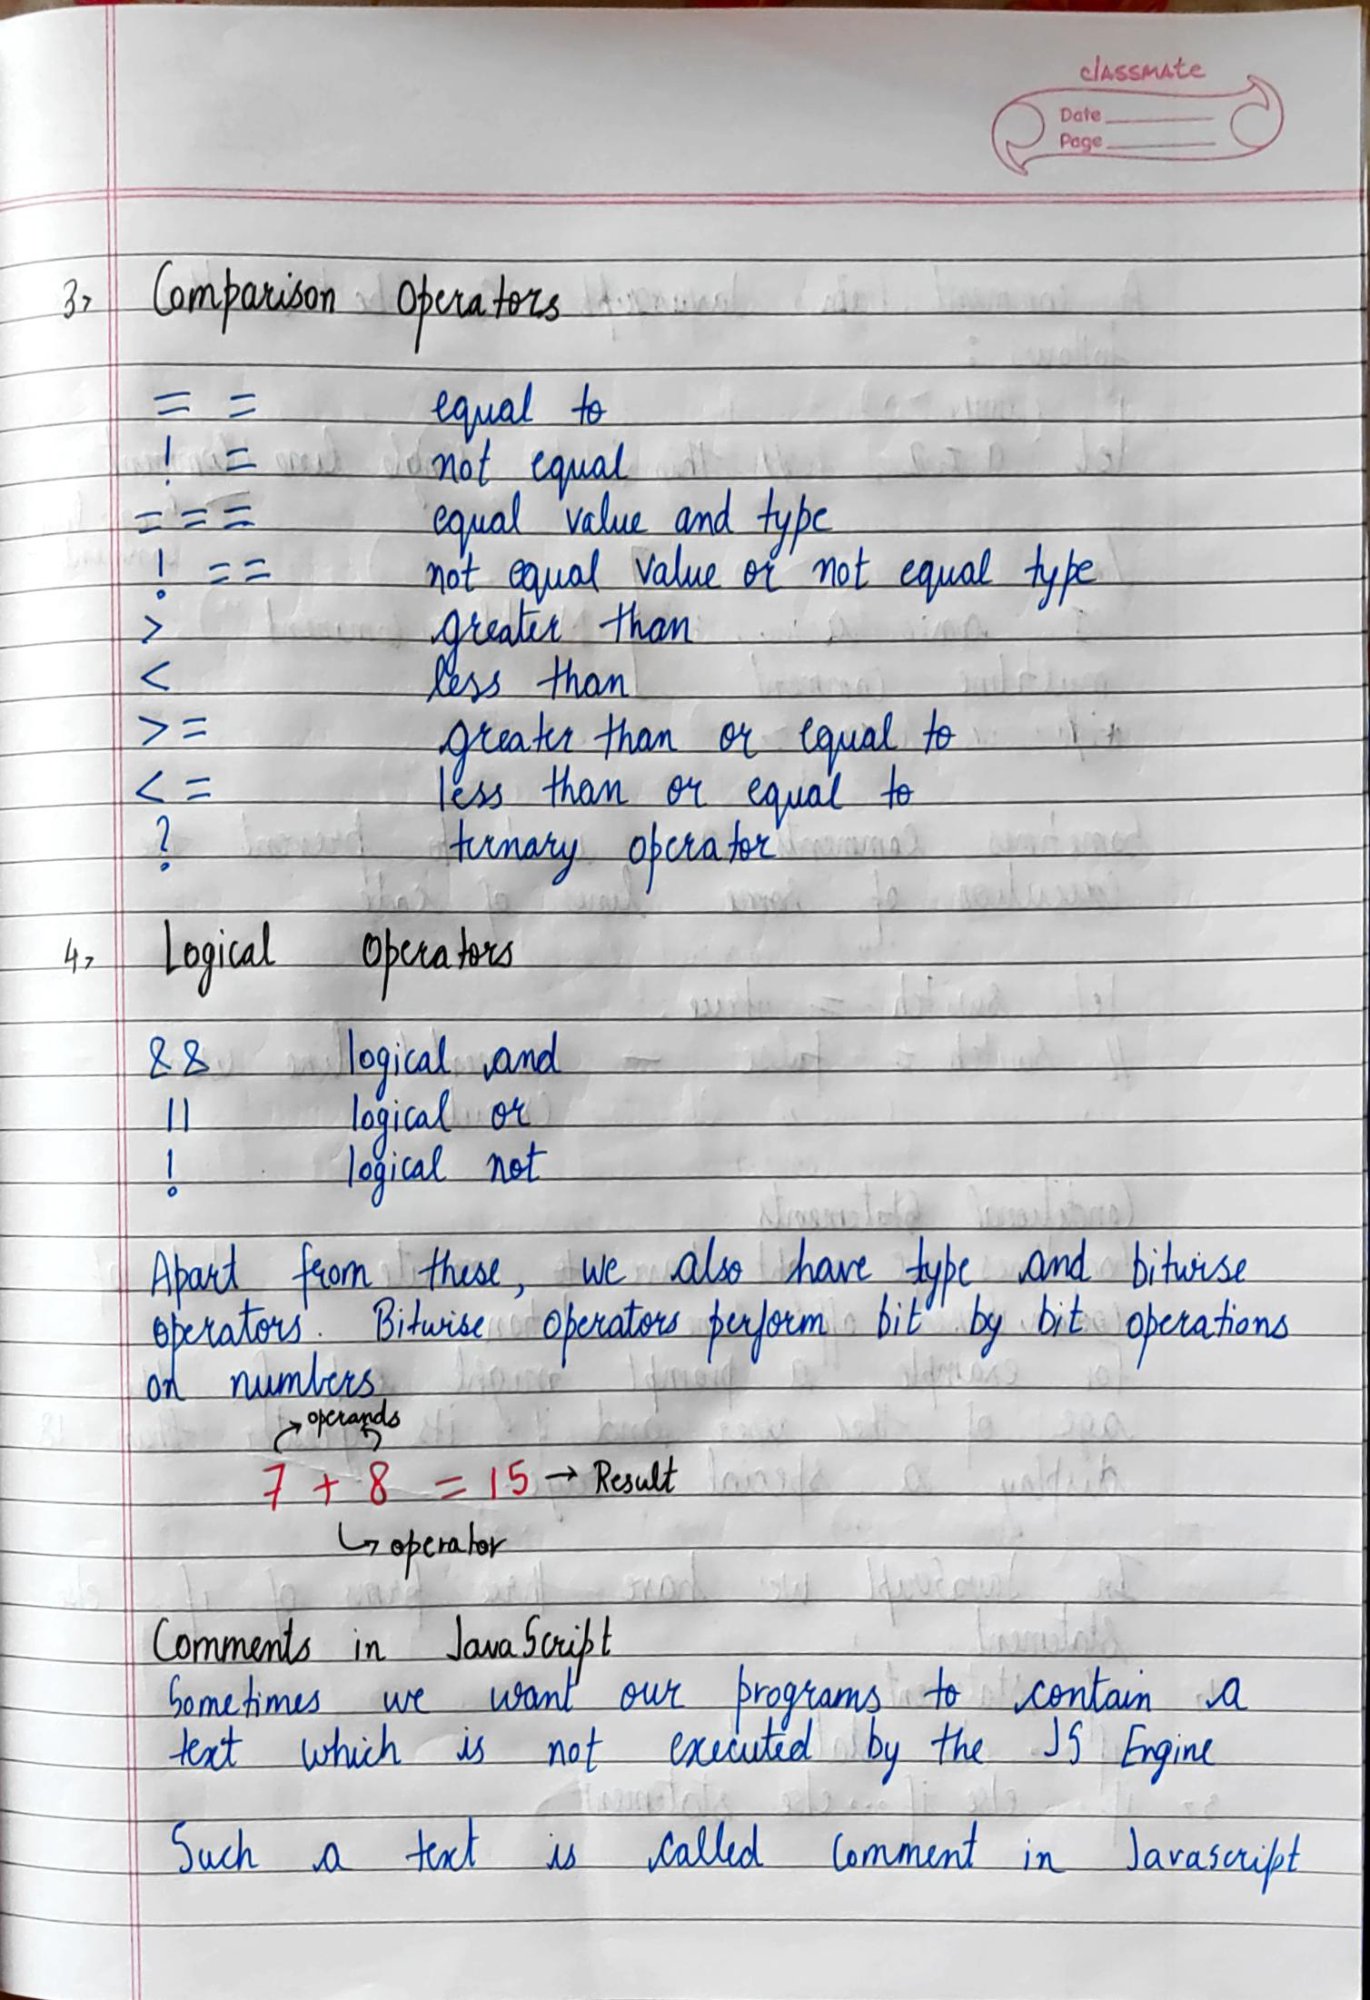 classmate
Date
Page
3, Comparison Operators
= = equal to
! = not equal
= = = equal value and type
! = = not equal value or not equal type
> greater than
< less than
> = greater than or equal to
< = less than or equal to
? ternary operator
4, Logical Operators
&& logical and
|| logical or
! logical not
Apart from these, we also have type and bitwise
operators. Bitwise operators perform bit by bit operations
on numbers
operands
7 + 8 = 15 → Result
operator
Comments in JavaScript
Sometimes we want our programs to contain a
text which is not executed by the JS Engine
Such a text is called comment in Javascript